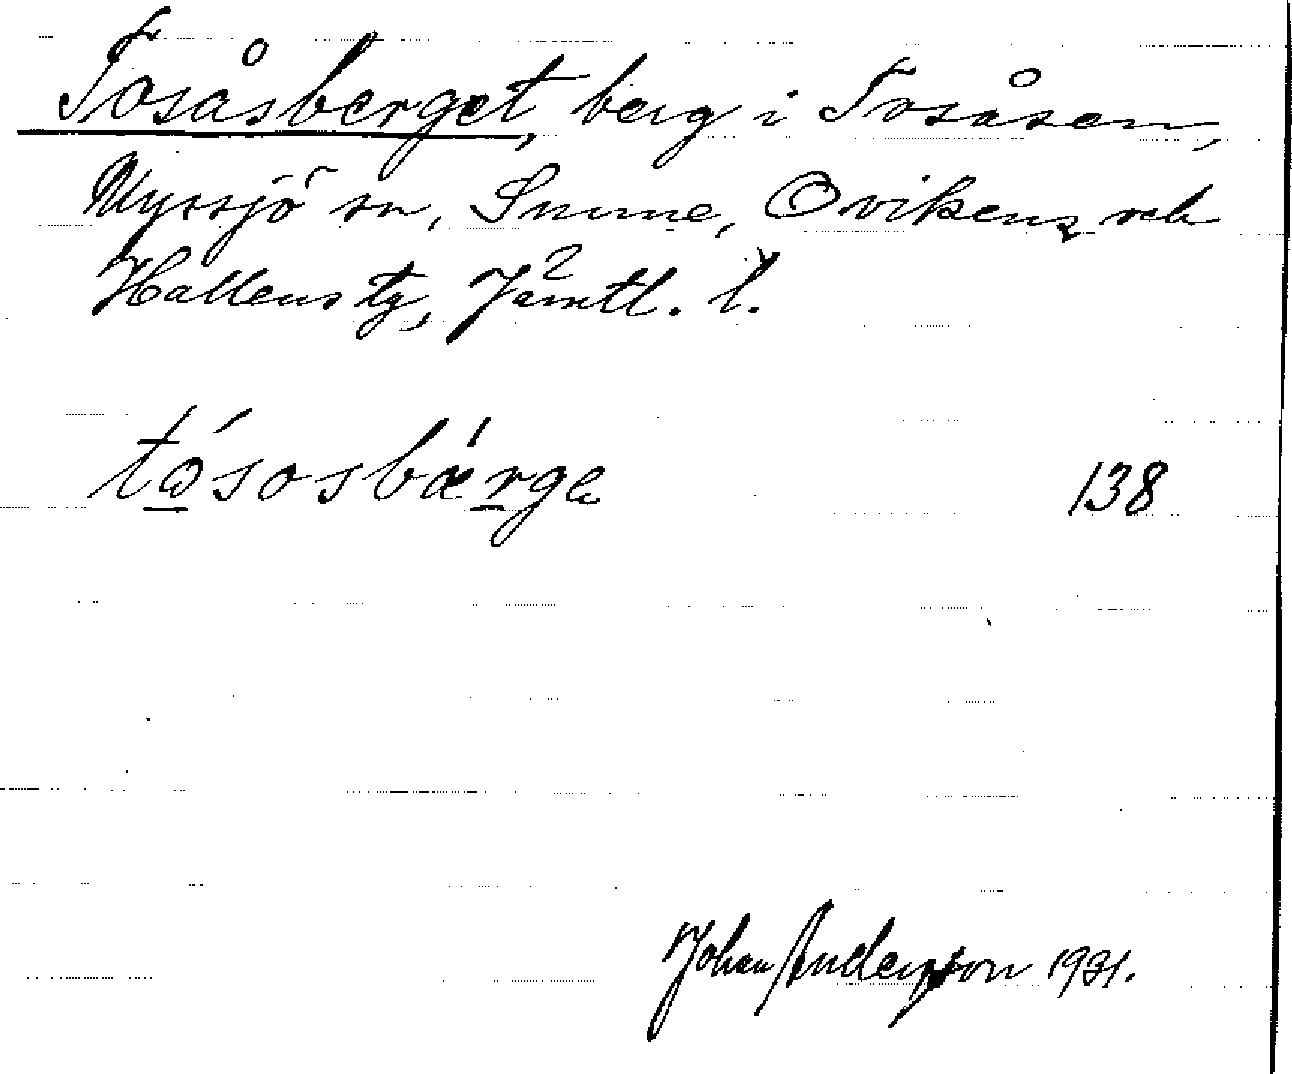 Tosåsberget, berg i Tosåsen,
Myssjö sn, Sunne, Ovikens och
Hallens tg, Jämtl. l.
tósosbǽrge
138
Johan Anderson 1931.